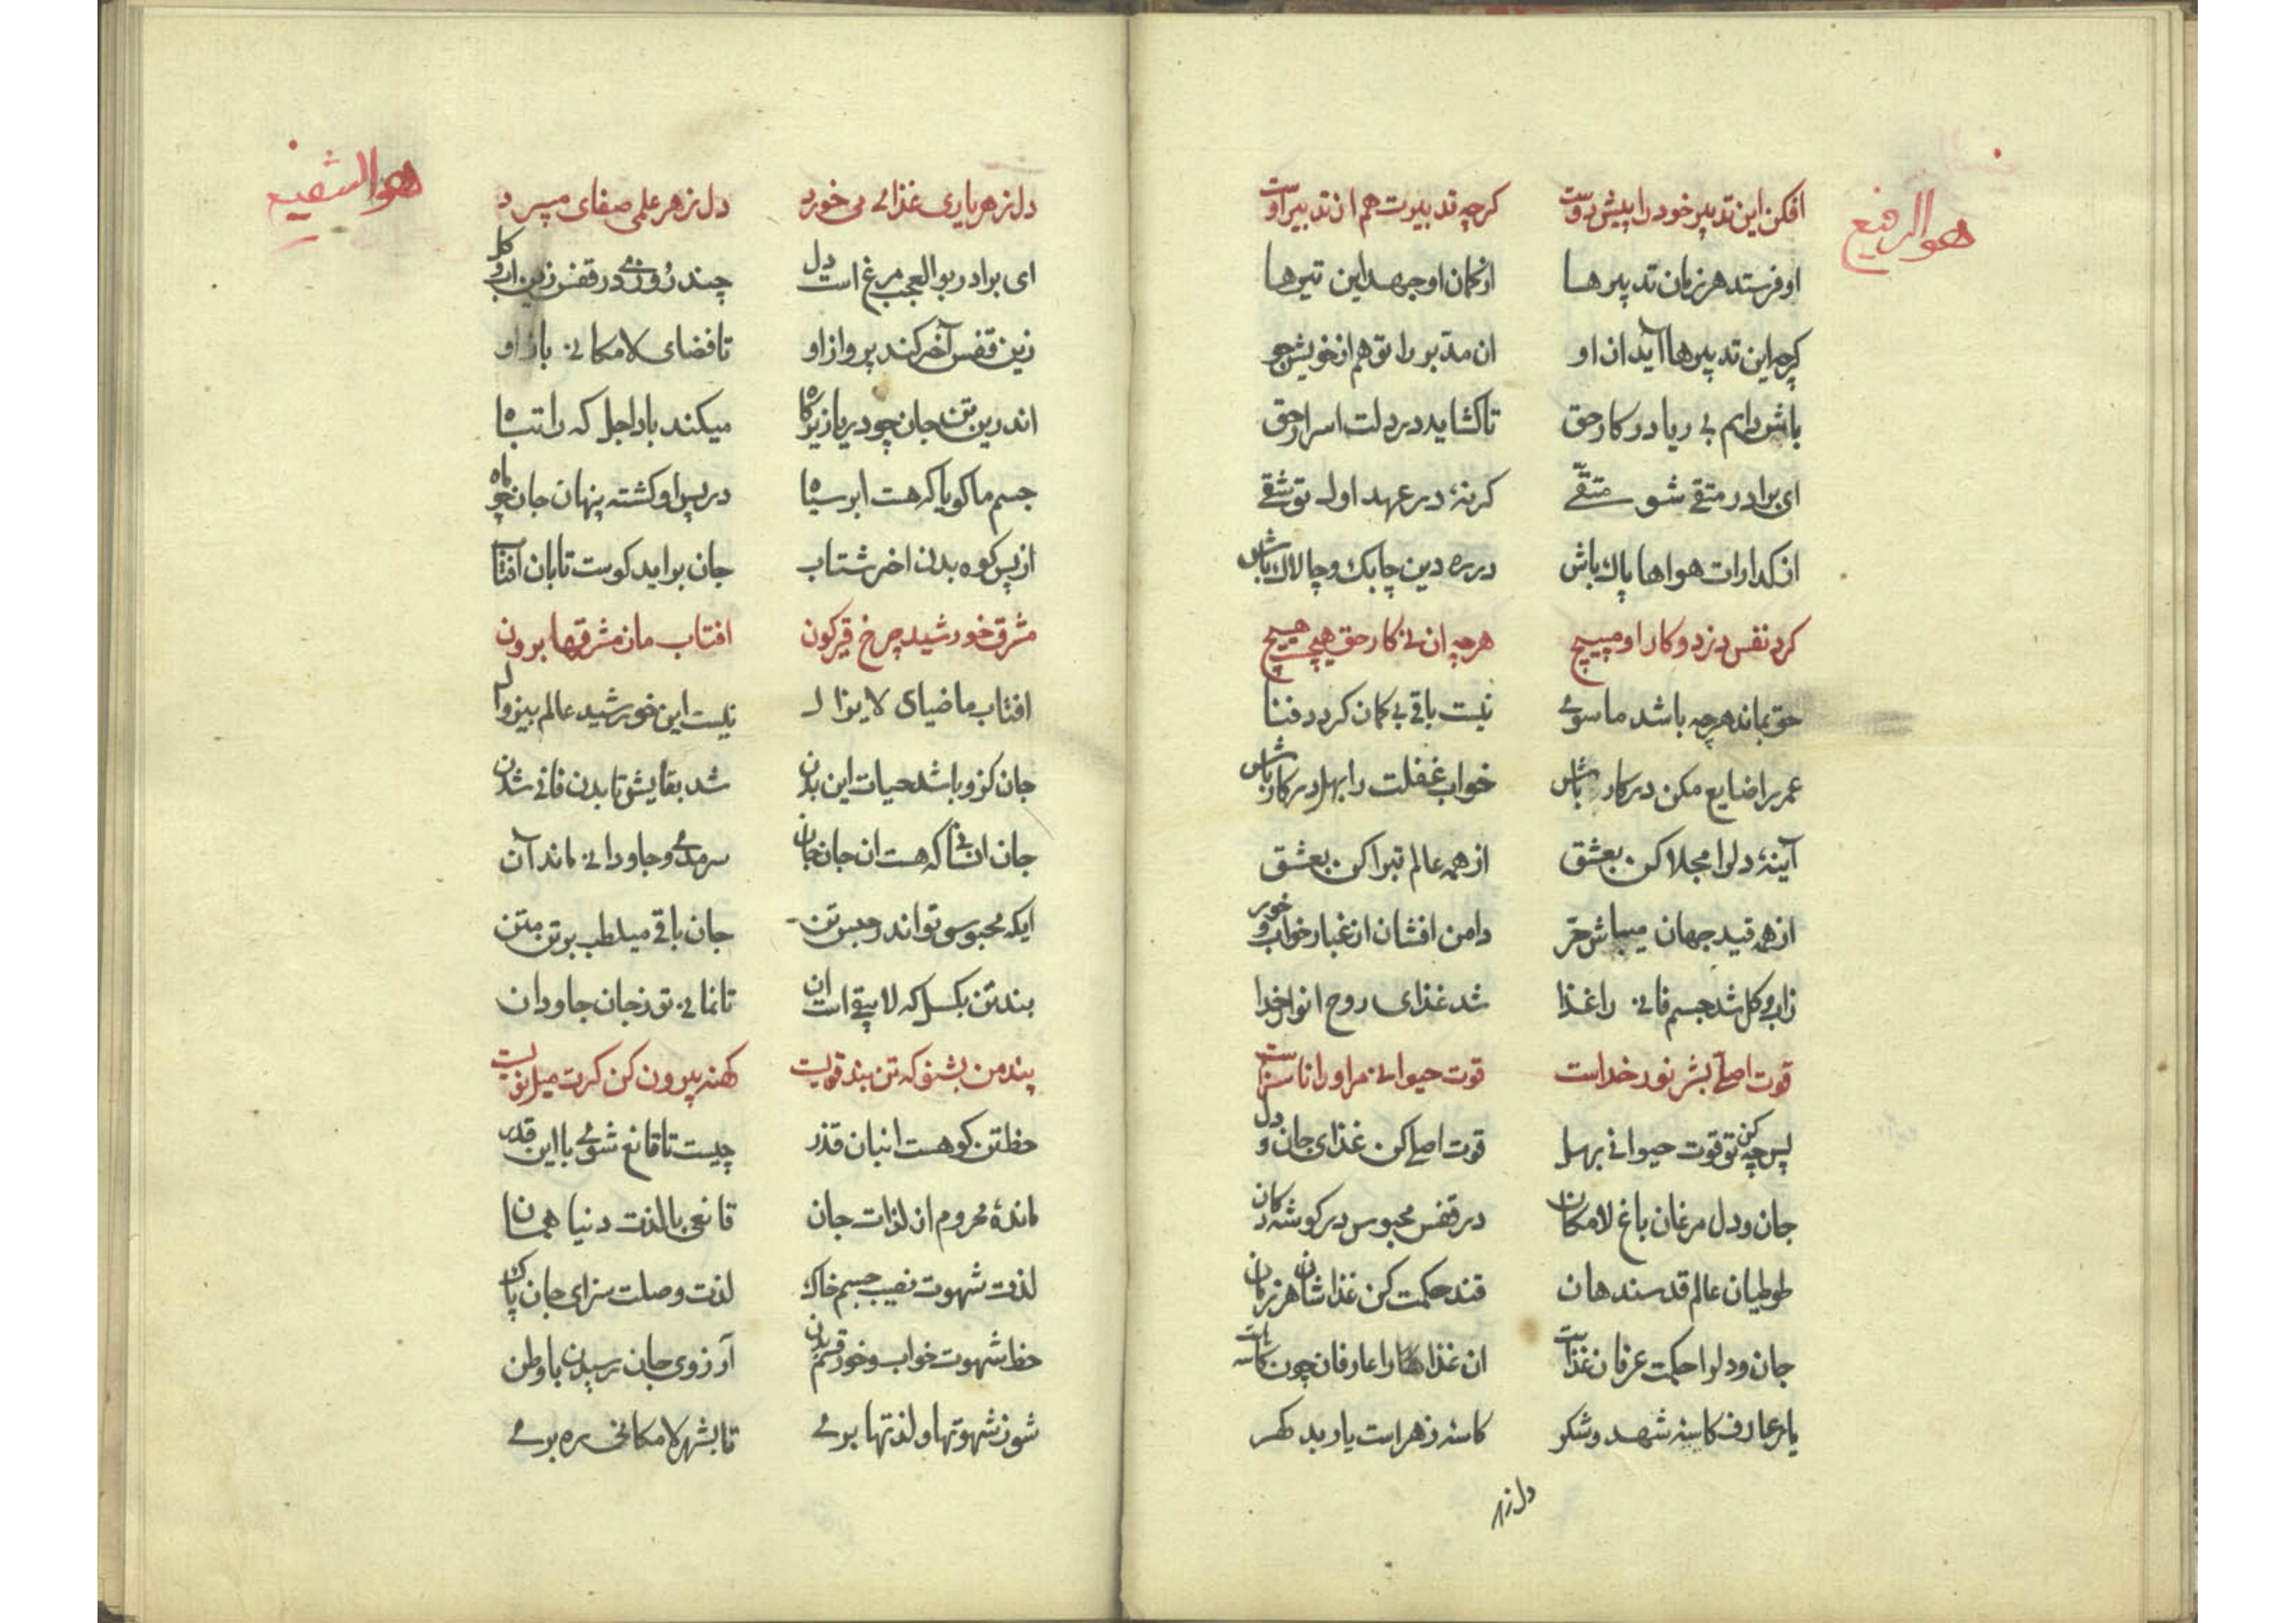 هو الرفیع
افکن این تدبیر خود را پیش دوست کرچه تدبیرت هم از تدبیر اوست
او فرستد هر زمان تدبیرها از کمان او جهد این تیرها
کرچه این تدبیرها آید از او ان مدبر را تو هم از خویش جو
باش دایم بی ریا در کار حق تا کشاید در دلت اسرار حق
ای برادر متقی شو متقی کر نهٔ در عهد اول تو شقی
از کدارات هواها پاک باش در ره دین چابک و چالاک باش
کرد نفس دزد و کار او مپیچ هرچه ان نی کار حق هیچست هیچ
حق بماند هرچه باشد ماسوی نیست باقی بی کمان کردد فنا
عمر را ضایع مکن در کار باش خواب غفلت را بهل در کار باش
آینهٔ دلرا مجلا کن بعشق از همه عالم تبرا کن بعشق
از همه قید جهان میباش حر دامن افشان از غبار خواب و خور
زاب و کل شد جسم فانی را غذا شد غذای روح انوار خدا
قوت اصلی بشر نور خداست قوت حیوانی مر او را ناسزاست
پس چه کن تو قوت حیوانی بهل قوت اصلی کن غذای جان و دل
جان و دل مرغان باغ لامکان در قفس محبوس در کوشه دکان
طوطیان عالم قدسند هان قند حکمت کن غذاشان هر زمان
جان و دلرا حکمت عرفان غذاست ان غذاها را عارفان چون کاسه‌هاست
یار عارف کاسهٔ شهد و شکر کاسهٔ زهر است یار بد کهر
دل زهر
هو الشفیع
دل ز هر یاری غذائی می خورد دل ز هر علمی صفای میبرد
ای برادر بوالعجب مرغ است دل چند روزی در قفس زین اب و کل
زین قفس آخر کند پرواز او تا فضای لامکانی باز او
اندرین تن جان چو در یا زیر کاه میکند باد اجل که را تباه
جسم ما کویا که هست ابر سیاه در پس او کشته پنهان جان چو ماه
از پس کوه بدن اخر شتاب جان براید کوست تابان آفتاب
مشرق خورشید چرخ قیرکون افتاب ما ز مشرقها برون
افتاب ما ضیای لایزال نیست این خورشید عالم بیزوال
جان کزو باشد حیات این بدن شد بقایش تا بدن فانی شدن
جان انسانی که هست ان جان جان سرمدی و جاودانی ماند آن
ایکه محبوسی تو اندر حبس تن جان باقی میطلب برتن متن
بند تن بکسل که لایبقی است ان تا نمانی تو ز جان جاودان
پند من بشنو که تن بند قویست کهنه بیرون کن کرت میل نویست
حظ تن کو هست انبان قذر چیست تا قانع شوی با این قدر
ماندهٔ محروم از لذات جان قانعی با لذت دنیا همان
لذت شهوت نصیب جسم خاک لذت وصلت سزای جان پاک
حظ شهوت خواب و خور قسم بدن آرزوی جان رسیدن با وطن
شو ز شهوتها و لذتها بری تا بشهر لامکانی ره بری